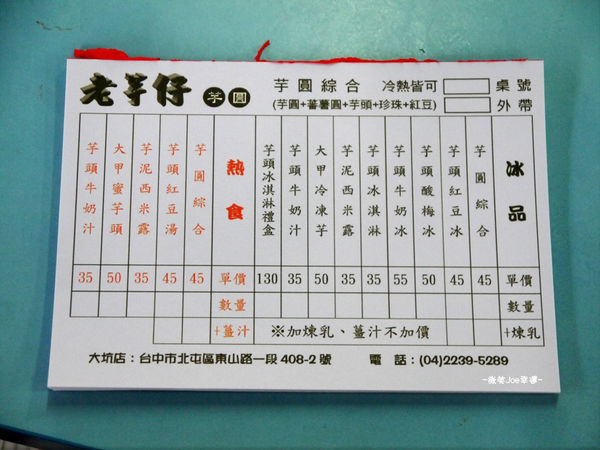 老芋仔 芋圓
芋圓綜合 冷熱皆可 桌號
(芋圓+蕃薯圓+芋頭+珍珠+紅豆) 外帶
冰品 單價 數量 +煉乳
芋圓綜合 45
芋頭紅豆冰 45
芋頭酸梅冰 50
芋頭牛奶冰 55
芋頭冰淇淋 35
芋泥西米露 35
大甲冷凍芋 50
芋頭牛奶汁 35
芋頭冰淇淋禮盒 130
熱食 單價 數量 +薑汁
芋圓綜合 45
芋頭紅豆湯 45
芋泥西米露 35
大甲蜜芋頭 50
芋頭牛奶汁 35
※加煉乳、薑汁不加價
大坑店：台中市北屯區東山路一段408-2號 電話：(04)2239-5289